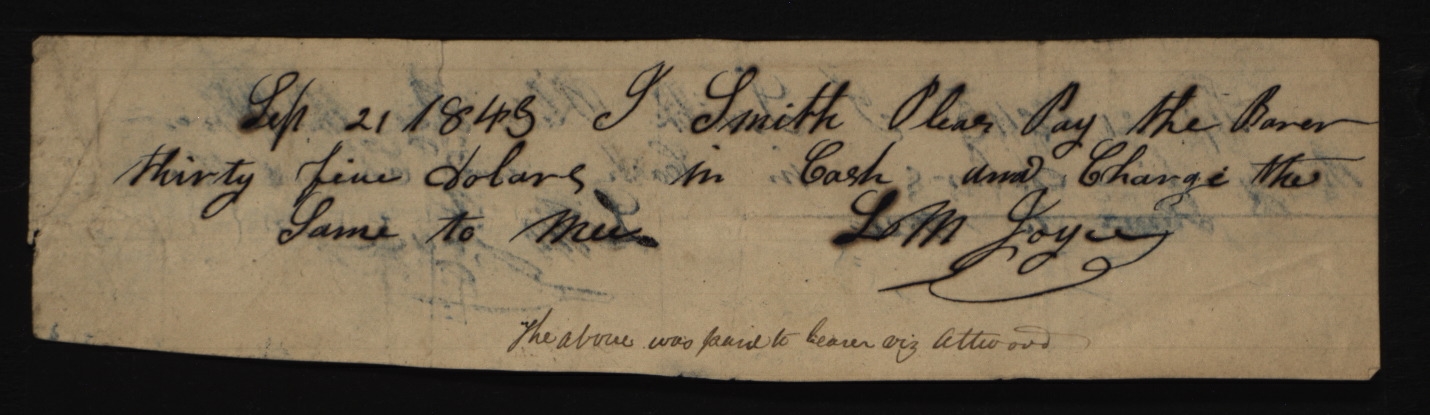 Sep 21 1843 J Smith Pleas Pay the Barer
thirty five dolars in Cash and Charge the
Same to Mee L M Joyce
The above was paid to bearer viz Attwood